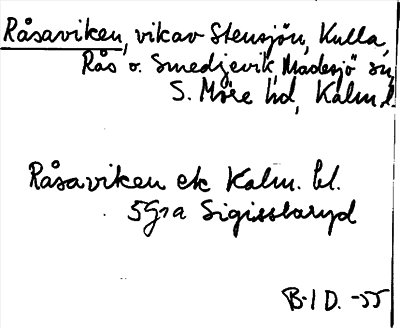 Råsaviken, vik av Stensjön, Kulla,
Rås o. Smedjevik, Madesjö sn,
S. Möre hd, Kalm. l.
Råsaviken ek Kalm. bl.
5G7a Sigisslaryd
B-I D. -55